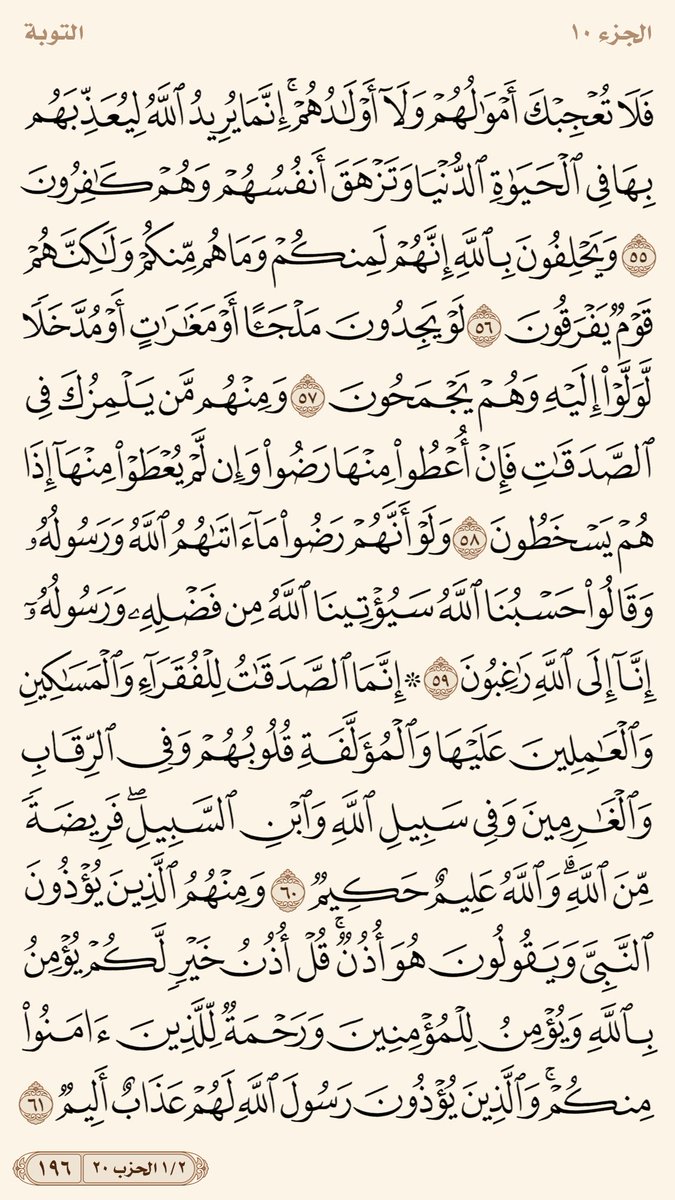 الجزء ١٠
التوبة
فَلَا تُعْجِبْكَ أَمْوَٰلُهُمْ وَلَآ أَوْلَـٰدُهُمْ ۚ إِنَّمَا يُرِيدُ ٱللَّهُ لِيُعَذِّبَهُم
بِهَا فِى ٱلْحَيَوٰةِ ٱلدُّنْيَا وَتَزْهَقَ أَنفُسُهُمْ وَهُمْ كَـٰفِرُونَ
٥٥ وَيَحْلِفُونَ بِٱللَّهِ إِنَّهُمْ لَمِنكُمْ وَمَا هُم مِّنكُمْ وَلَـٰكِنَّهُمْ
قَوْمٌ يَفْرَقُونَ ٥٦ لَوْ يَجِدُونَ مَلْجَـًٔا أَوْ مَغَـٰرَٰتٍ أَوْ مُدَّخَلًا
لَّوَلَّوْا۟ إِلَيْهِ وَهُمْ يَجْمَحُونَ ٥٧ وَمِنْهُم مَّن يَلْمِزُكَ فِى
ٱلصَّدَقَـٰتِ فَإِنْ أُعْطُوا۟ مِنْهَا رَضُوا۟ وَإِن لَّمْ يُعْطَوْا۟ مِنْهَآ إِذَا
هُمْ يَسْخَطُونَ ٥٨ وَلَوْ أَنَّهُمْ رَضُوا۟ مَآ ءَاتَىٰهُمُ ٱللَّهُ وَرَسُولُهُۥ
وَقَالُوا۟ حَسْبُنَا ٱللَّهُ سَيُؤْتِينَا ٱللَّهُ مِن فَضْلِهِۦ وَرَسُولُهُۥٓ
إِنَّآ إِلَى ٱللَّهِ رَٰغِبُونَ ٥٩ ۞ إِنَّمَا ٱلصَّدَقَـٰتُ لِلْفُقَرَآءِ وَٱلْمَسَـٰكِينِ
وَٱلْعَـٰمِلِينَ عَلَيْهَا وَٱلْمُؤَلَّفَةِ قُلُوبُهُمْ وَفِى ٱلرِّقَابِ
وَٱلْغَـٰرِمِينَ وَفِى سَبِيلِ ٱللَّهِ وَٱبْنِ ٱلسَّبِيلِ ۖ فَرِيضَةً
مِّنَ ٱللَّهِ ۗ وَٱللَّهُ عَلِيمٌ حَكِيمٌ ٦٠ وَمِنْهُمُ ٱلَّذِينَ يُؤْذُونَ
ٱلنَّبِىَّ وَيَقُولُونَ هُوَ أُذُنٌ ۚ قُلْ أُذُنُ خَيْرٍ لَّكُمْ يُؤْمِنُ
بِٱللَّهِ وَيُؤْمِنُ لِلْمُؤْمِنِينَ وَرَحْمَةٌ لِّلَّذِينَ ءَامَنُوا۟
مِنكُمْ ۚ وَٱلَّذِينَ يُؤْذُونَ رَسُولَ ٱللَّهِ لَهُمْ عَذَابٌ أَلِيمٌ ٦١
١/٢ الحزب ٢٠ ١٩٦